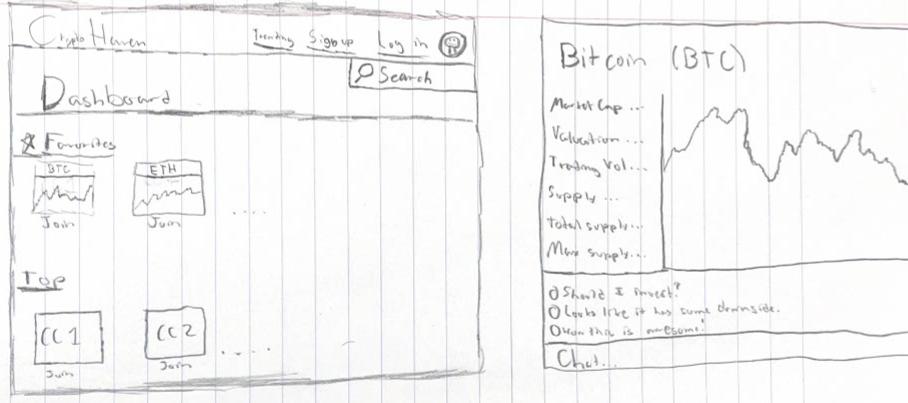 Crypto Haven
Trending Sign up Log in
Search
Dashboard
Favorites
BTC ETH
Join Join ....
Top
CC1 CC2
Join Join ....
Bitcoin (BTC)
Market Cap ...
Valuation ...
Trading Vol...
Supply ...
Total supply...
Max supply...
Should I invest?
Looks like it has some downside.
this is awesome!
Chat...